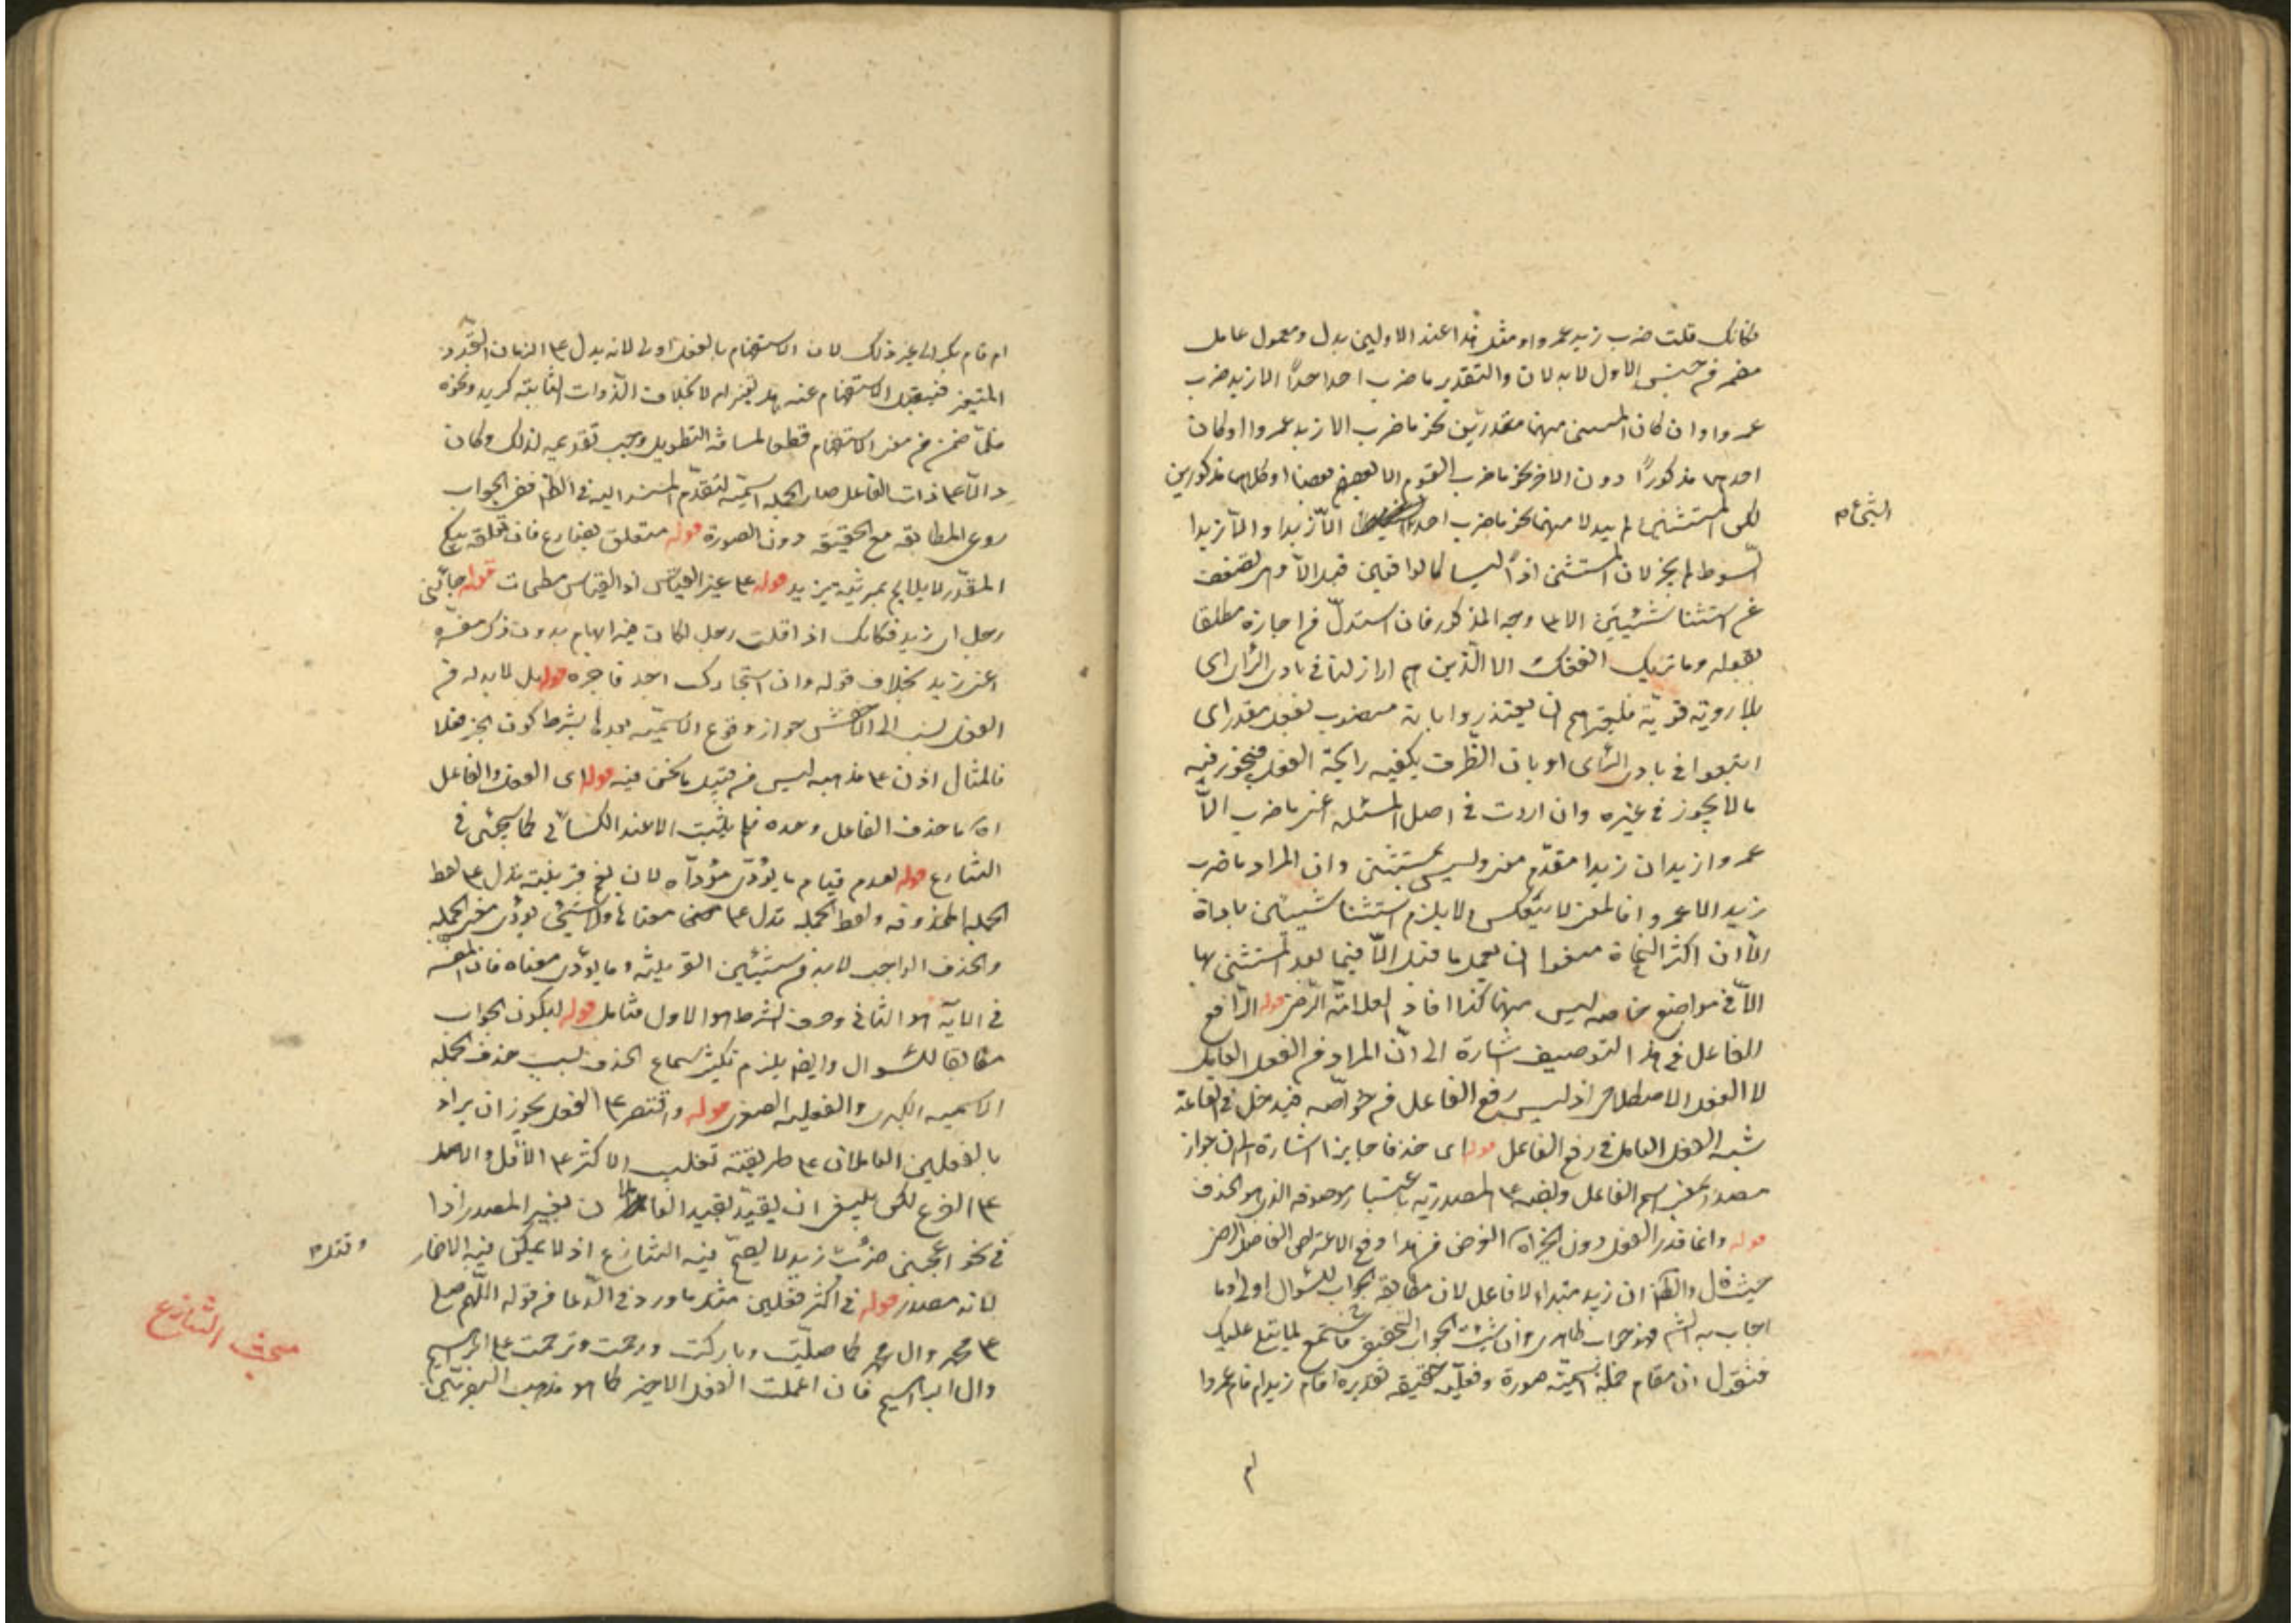 فكانك قلت ضرب زيد عمروا ومثل هذا عند الاولين بدل ومعمول عامل
مضمر من جنس الاول لا بدلان والتقدير ما ضرب احد احدًا الا زيد ضرب
عمروا وان كان المستثنى منهما مقدرين نحو ما ضرب الا زيد عمروا او كان
احدهما مذكورًا دون الاخر نحو ما ضرب القوم الا بعضهم بعضا او كلاهما مذكورين
لكن المستثنى لم يبدلا منهما نحو ما ضرب احد الا زيدا والا زيدا
السوط لم يجز لان المستثنى اذًا ليسا كالواقعين قبل الا وهى تضعف
عن استثنا شيئين الا على وجه المذكور فان استدل من اجازه مطلقا
بقوله وما نريك اتبعك الا الذين هم اراذلنا فى بادى الراى اى
بلا روية قوية فلغيرهم ان يعتذروا بانه منصوب بفعل مقدر اى
اتبعوا فى بادى الراى او بان الظرف يكفيه رايحة الفعل فيجوز فيه
ما لا يجوز فى غيره وان اردت فى اصل المسئلة اعنى ما ضرب الا
عمروا زيد ان زيدا مقدم معنى وليس بمستثنى وان المراد ما ضرب
زيد الا عمروا فالمعنى لا ينعكس ولا يلزم استثنا شيئين باداة
الا ان اكثر النحاة منعوا ان يعمل ما قبل الا فيما بعد المستثنى بها
الا فى مواضع خاصه ليس منها كذا افاد العلامة الرضى قوله الرافع
للفاعل فى هذا التوصيف اشارة الى ان المراد من الفعل العامل
لا الفعل الاصطلاحى اذ ليس رفع الفاعل من خواصه فيدخل فى القاعدة
شبه الفعل العامل فى رفع الفاعل قوله اى حذفا جايزا اشارة الى ان جواز
مصدر بمعنى اسم الفاعل ونصبه على المصدرية باعتبار موصوفه الذى هو الحذف
قوله وانما قدر الفعل دون الخبر اه الغرض من هذا دفع الاعتراض الفاضل الرضى
حيث قال والظاهر ان زيد مبتداء لا فاعل لان مطابقة الجواب للسؤال اولى وما
اجاب به الشم فهو جواب ظاهرى وان شئت الجواب التحقيقى فاستمع لما يتلى عليك
فنقول ان من قام جملة اسمية صورة وفعلية حقيقة تقديره اقام زيد ام قام عمروا
ام
الشئ م
ام قام بكر الى غير ذلك لان الاستفهام بالفعل اولى لانه يدل على الزمان المتجدد
المتغير فيقبل الاستفهام عنه هل تغير ام لا بخلاف الذوات الثابتة كزيد ونحوه
فلما ضمن من معنى الاستفهام قطعا لمسافة التطويل وجب تقديمه لذلك وكان
دالا على ذات الفاعل صار الجملة اسمية لتقدم المسند اليه فى الظاهر ففى الجواب
روعى المطابقة مع الحقيقة دون الصورة قوله متعلق بضارع فان تعلقه بيبك
المقدر لا يلايم بمرثية يزيد قوله على غير القياس اذ القياس مطيحات قوله جاءنى
رجل اى زيد فكانك اذا قلت رجل لكان فيه ابهام بدون ذكر مفسره
اعنى زيد بخلاف قوله وان استجارك احد فاجره قوله بل لا بد له من
الفعل نسب الى الاخفش جواز وقوع الاسمية بعدها بشرط كون الخبر فعلا
فالمثال اذن على مذهبه ليس من قبيل ما نحن فيه قوله اى الفعل والفاعل
اه اما حذف الفاعل وحده فلم يثبت الا عند الكسائى كما سيجئ فى
التنازع قوله لعدم قيام ما يؤدى مؤداه لان نعم قرينة تدل على لفظ
الجملة المحذوفة ولفظ الجملة تدل على معناها ولا شئ يؤدى معنى الجملة
والحذف الواجب لا بد من شيئين القرينة وما يؤدى معناه فان المفسر
فى الاية هو الثانى وحرف الشرط هو الاول فتامل قوله ليكون الجواب
مطابقا للسؤال وايضا يلزم تكثير سماع الحذف بسبب حذف الجملة
الاسمية الكبرى والفعلية الصغرى قوله واقتصر على الفعل يجوز ان يراد
بالفعلين العاملان على طريقة تغليب الاكثر على الاقل والاصل
على الفرع لكن ينبغى ان يقيد بقيد العاملان بغير المصدر اذا
فى نحو اعجبنى ضرب زيد لا يصح فيه التنازع اذ لا يمكن فيه الاضمار
لانه مصدر قوله فى اكثر فعلين مثل ما ورد فى الدعا من قوله اللهم صل
على محمد وال محمد كما صليت وباركت ورحمت وترحمت على ابراهيم
وال ابراهيم فان اعملت الفعل الاخير كما هو مذهب البصريين
مبحث التنازع